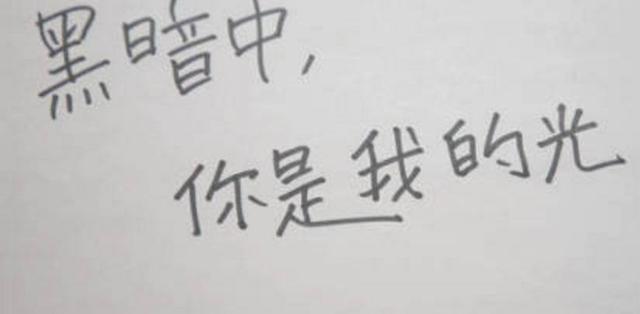 黑暗中,
你是我的光